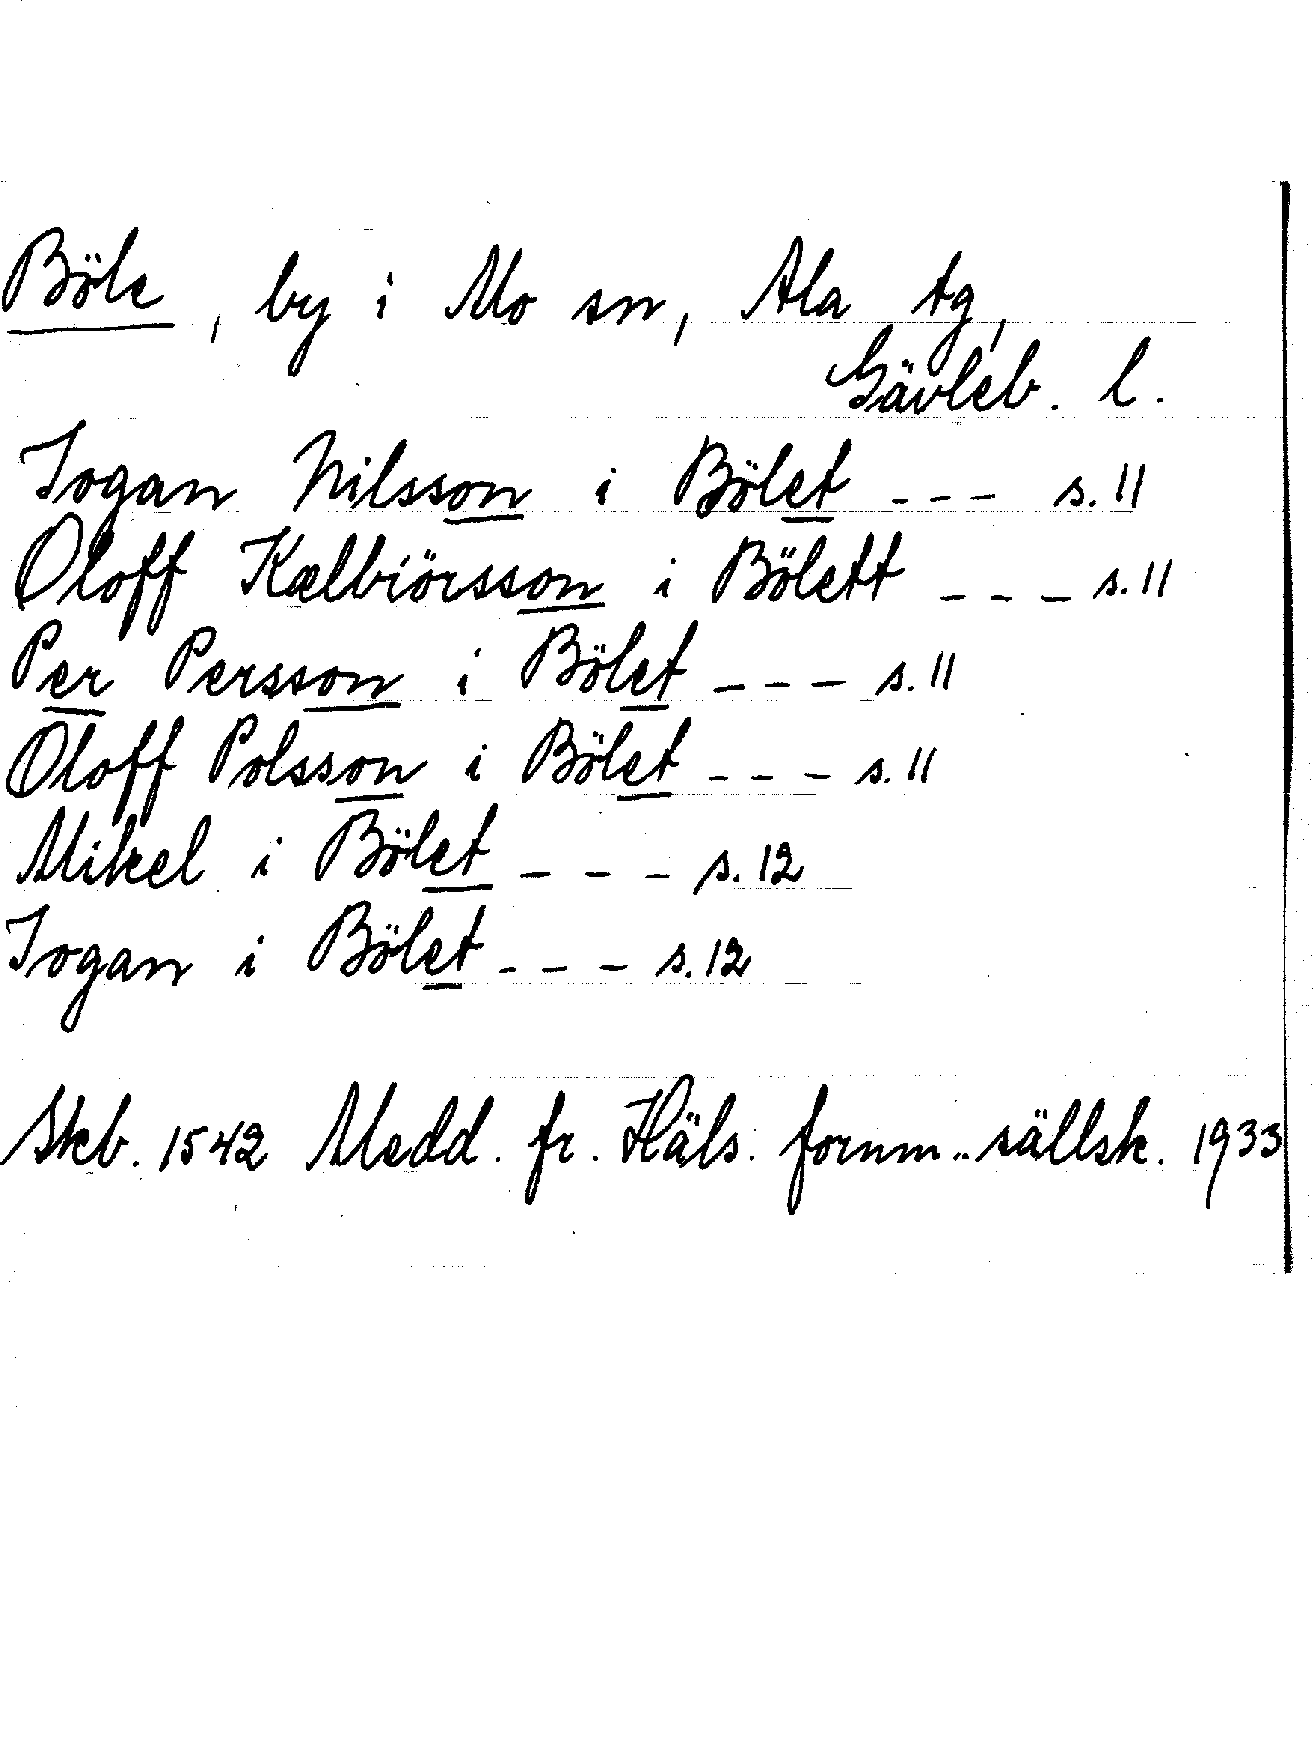 Böle, by i Mo sn, Ala tg,
Gävleb. l.
Jogan Nilsson i Bölet --- s. 11
Oloff Kælbiörsson i Bölett --- s. 11
Per Persson i Bölet --- s. 11
Oloff Polsson i Bölet --- s. 11
Mikel i Bölet --- s. 12
Jogan i Bölet --- s. 12
Skb. 1542 Medd. fr. Häls. fornm.. sällsk. 1933